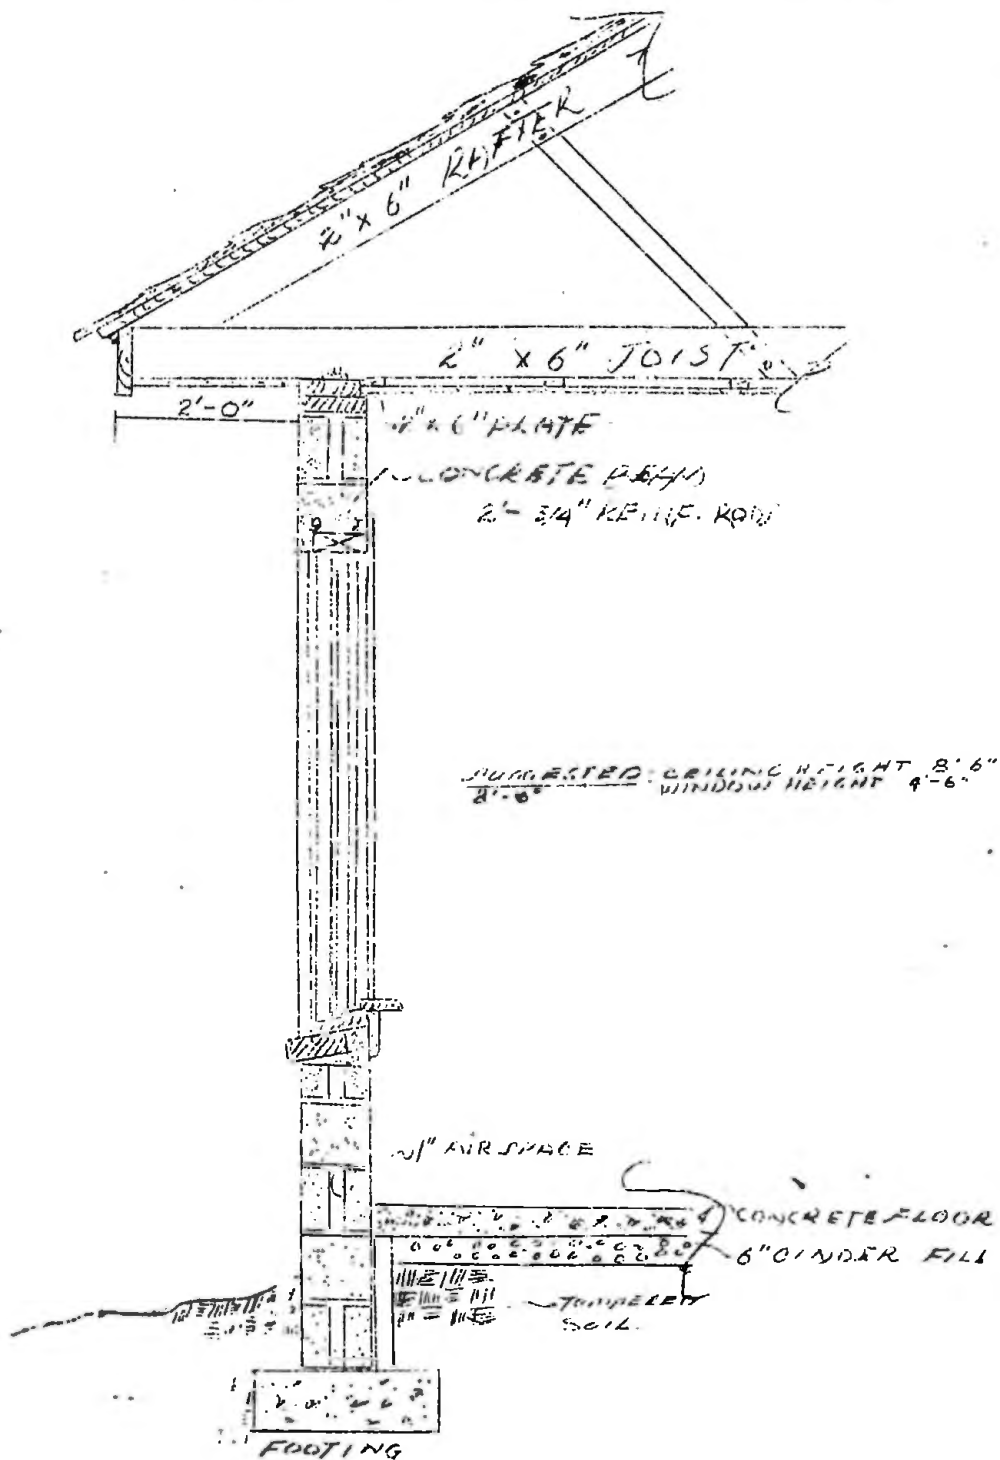 2" x 6" RAFTER
2" x 6" JOIST
2'-0"
2" x 6" PLATE
CONCRETE BEAM
2'- 3/4" REINF. ROD
SUGGESTED: CEILING HEIGHT 8'6"
WINDOW HEIGHT 4'-6"
1" AIR SPACE
4" CONCRETE FLOOR
6" CINDER FILL
SOIL
FOOTING